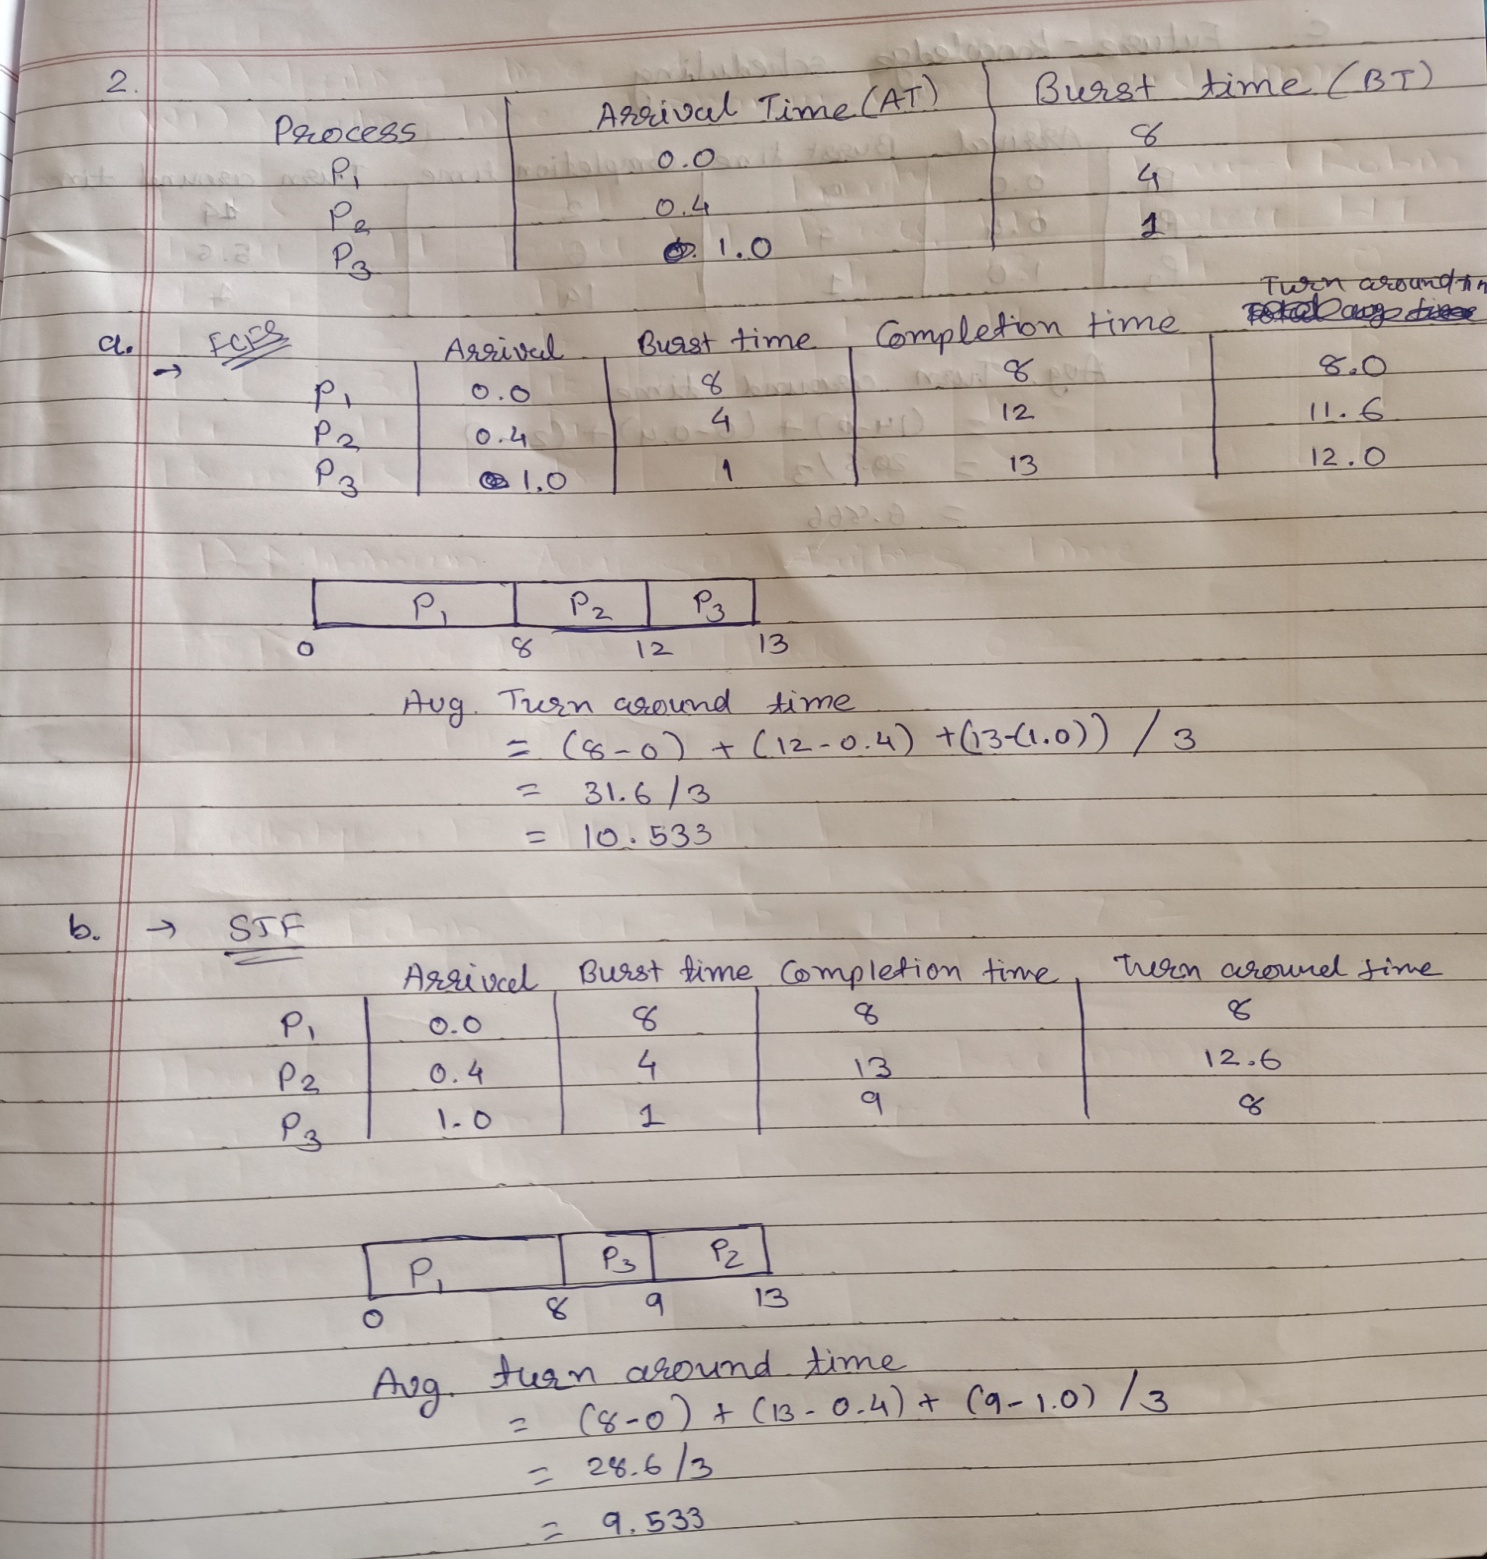 2.
Process Arrival Time (AT) Burst time (BT)
P1 0.0 8
P2 0.4 4
P3 1.0 1
a. → FCFS
Arrival Burst time Completion time Turn around
P1 0.0 8 8 8.0
P2 0.4 4 12 11.6
P3 1.0 1 13 12.0
P1 P2 P3
0 8 12 13
Avg. Turn around time
= (8-0) + (12-0.4) + (13-(1.0)) / 3
= 31.6 / 3
= 10.533
b. → SJF
Arrival Burst time Completion time Turn around time
P1 0.0 8 8 8
P2 0.4 4 13 12.6
P3 1.0 1 9 8
P1 P3 P2
0 8 9 13
Avg. turn around time
= (8-0) + (13-0.4) + (9-1.0) / 3
= 28.6 / 3
= 9.533